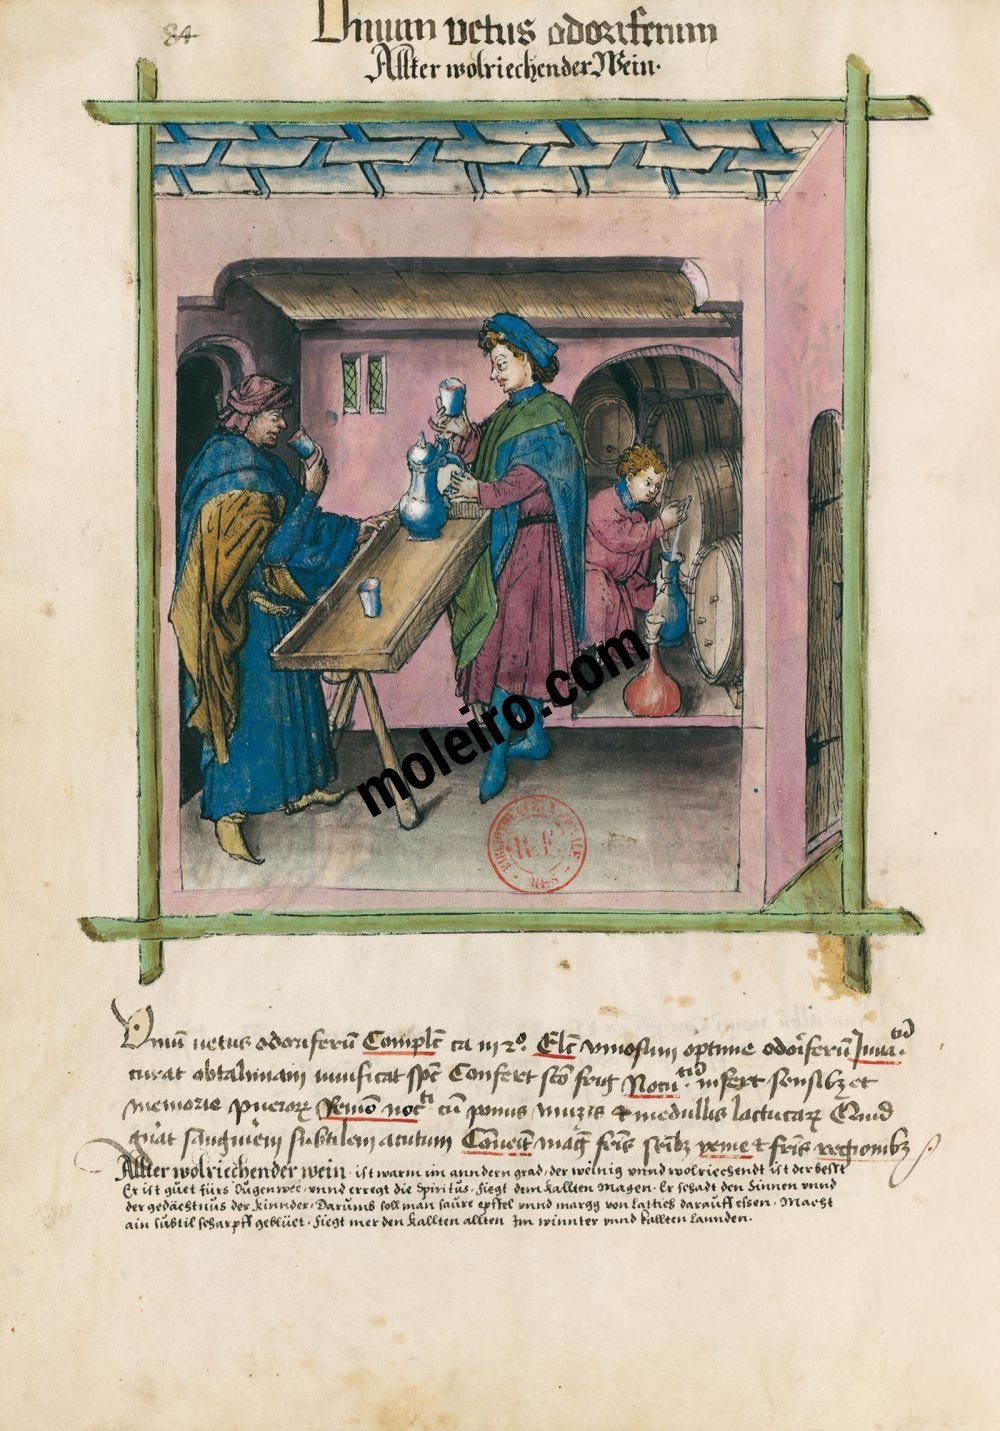 84
Vinum vetus odoriferum
Allter wolriechender Wein.
moleiro.com
R.F.
MSS
Vinũ vetus odoriferũ Complẽ ca in 2º. Elc̃ vinosum optime odoriferũ Iuua.tũ
curat obtalmiam viuificat sp̃c Confert sto frig Nocu.tũ infert sensibꝫ et
memorie pueroꝝ Remõ nocti cũ pomis muzis & medullis lactucaꝝ Quid
gñat sanguinem subtilem acutum Cõueit mag̃ fris senibꝫ yeme et fris regionibꝫ
Allter wolriechender wein. ist warm im anndern grad. der weinig vnnd wolriechendt ist der besst
Er ist guet fürs Augenwee. vnnd erregt die Spiritus. fiegt dem kallten Magen. Er schadt den Sinnen vnnd
der gedächtnus der kinnder. Darumb soll man saure epffel vnnd margg von Lattich darauff essen. Macht
ain subtil scharpff geblüet. fiegt mer den kallten allten Im winnter vnnd kallten Lannden.